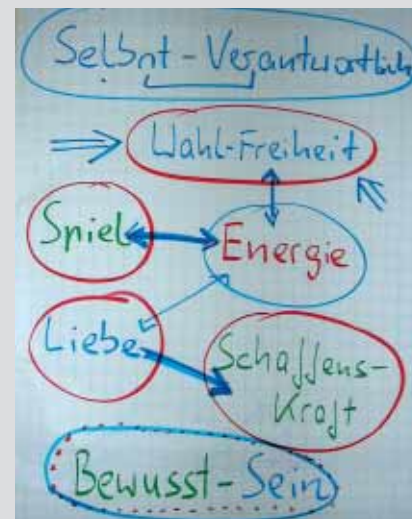 Selbst-Verantwortlich
Wahl-Freiheit
Spiel
Energie
Liebe
Schaffens-
Kraft
Bewusst-Sein